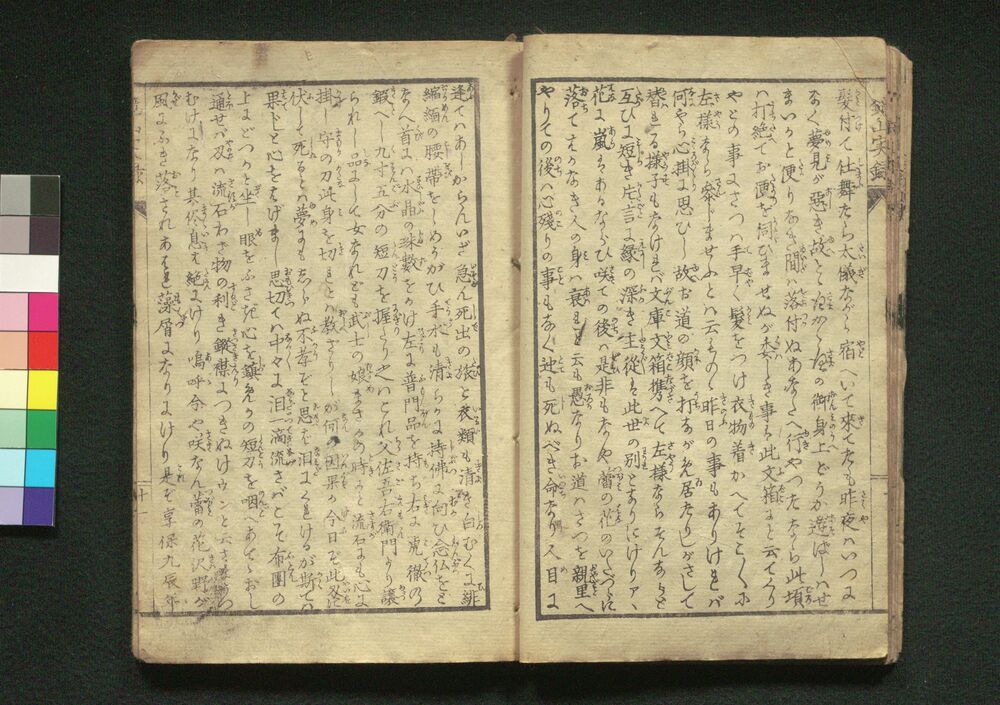 鏡山実録
髪付て仕舞たら太儀ながら宿へいて来てたも昨夜ハいつに
なく夢見が悪き故とゝ様かゝ様の御身上どうか遊ばしハせ
まいかと便りなき間ハ落付ぬあなたへ行やつたなら此頃
ハ打絶てお便を伺ひませぬが委しき事ハ此文箱にと云てくり
やとの事にさつハ手早く髪をつけ衣物着かへてそこ〳〵に
左様なら参じませふとハ云ものゝ昨日の事もありけれバ
何やら心掛に思ひし故お道の顔を打ながめ居たりしがさして
替れる様子もなけれバ文庫文箱携へて左様ならそんならと
互ひに短き片言に縁の深き主従も此世の別とありにけりア、
花に嵐もあるならひ咲ての後ハ是非もなや蕾の花のいたづらに
落てはかなき人の身ハ哀れと云も愚なりお道ハさつを親里へ
やりての後ハ心残りの事もなく迚も死ぬべき命なり人目に
逢てハあしからんいざ急ん死出の旅と夜類も清き白むくに緋
縮緬の腰帯をしめうがひ手水も清らかに持佛に向ひ念仏をと
なへ首に水晶の珠数をかけ左に普門品を持ち右に虎徹の
鍛へし九寸五分の短刀を握り之ハこれ父佐吾右衛門より譲
られし一品にして女なれども武士の娘まさかの時ハと流石にも心に
掛し守の刀此身を切れと教さりしが何の因果か今日を此刄に
伏して死るとハ夢にもしらぬ不孝をと思ひ泪にくれけるが斯てハ
果じと心をはげまし思切てハ中々に泪一滴流さバこそ布団の
上にどつかと坐し眼をふさぎ心を鎮めかの短刀を咽へあてゝおし
通せバ刄ハ流石わざ物の利き鍛襟につきぬけウンと云さま
むけになり其侭息も絶にけり嗚呼今や咲なん蕾の花沢野が
風にふき落されあはれ藻屑となりにけり是を享保九辰年
十一